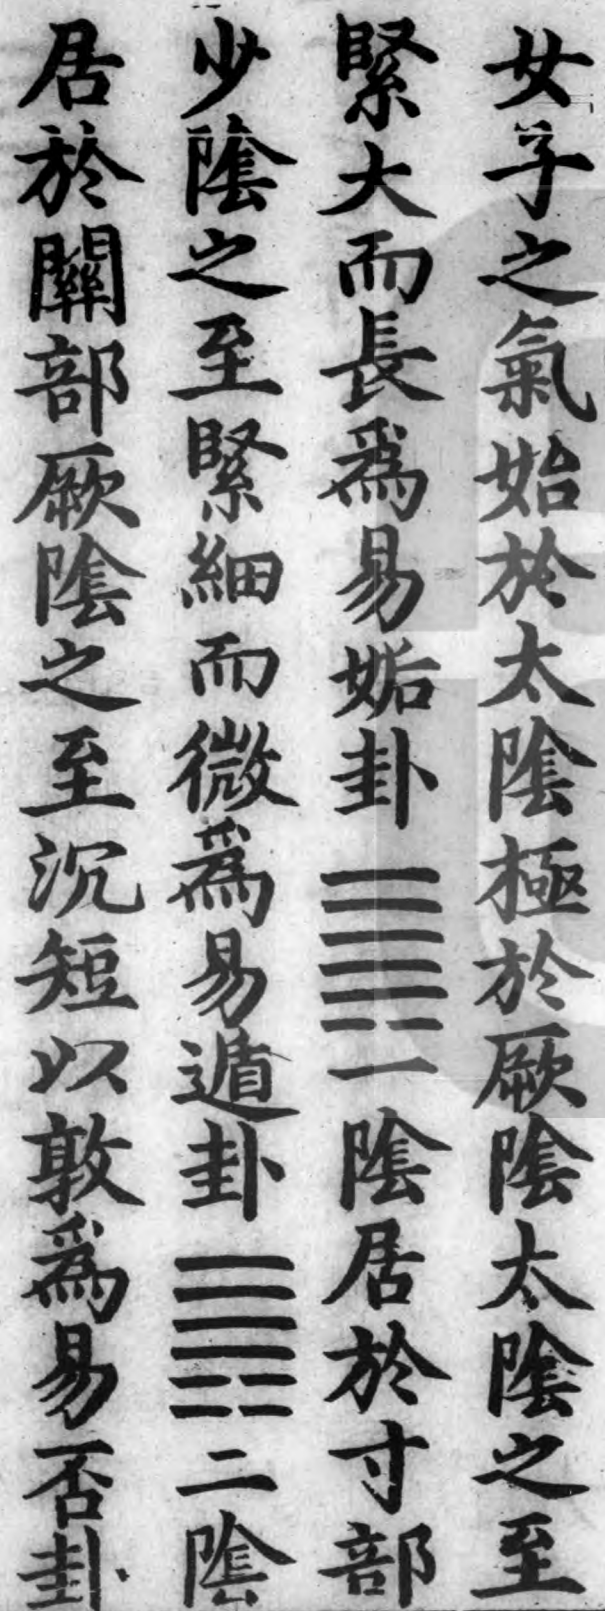 女子之氣始於太陰極於厥陰太陰之至
緊大而長爲易姤卦䷫一陰居於寸部
少陰之至緊細而微爲易遁卦䷠二陰
居於關部厥陰之至沉短以敦爲易否卦